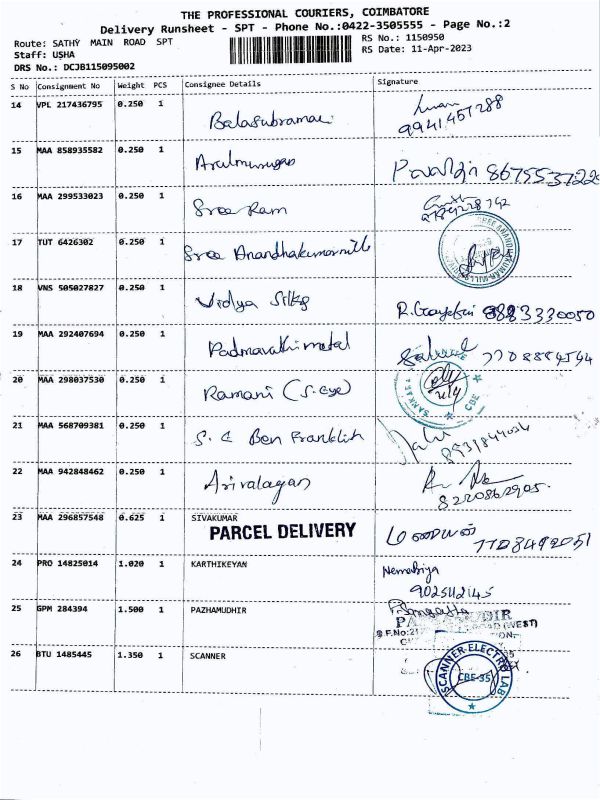 THE PROFESSIONAL COURIERS, COIMBATORE
Delivery Runsheet - SPT - Phone No.:0422-3505555 - Page No.:2
Route: SATHY MAIN ROAD SPT
RS No.: 1150950
Staff: USHA
RS Date: 11-Apr-2023
DRS No.: DCJB115095002
S No Consignment No Weight PCS Consignee Details Signature
14 VPL 217436795 0.250 1 Balasubramani
9941457288
15 MAA 858935582 0.250 1 Arulmurugan
16 MAA 299533023 0.250 1 Sree Ram
17 TUT 6426302 0.250 1 Sree Anandhakumar mills
18 VNS 505027827 0.250 1 Vidya Silks
R. Gayatri 9883330050
19 MAA 292407694 0.250 1 Padmavathi metal
7708884594
20 MAA 298037530 0.250 1 Ramani (S.Eye)
CBE
21 MAA 568709381 0.250 1 S. E Ben Franklin
22 MAA 942848462 0.250 1 Arivalagan
8220862905
23 MAA 296857548 0.625 1 SIVAKUMAR
PARCEL DELIVERY
7708492051
24 PRO 14825014 1.020 1 KARTHIKEYAN
25 GPM 284394 1.500 1 PAZHAMUDHIR
(WEST)
S.F.No:
26 BTU 1485445 1.350 1 SCANNER
SCANNER ELECTRO LAB
CBE-35